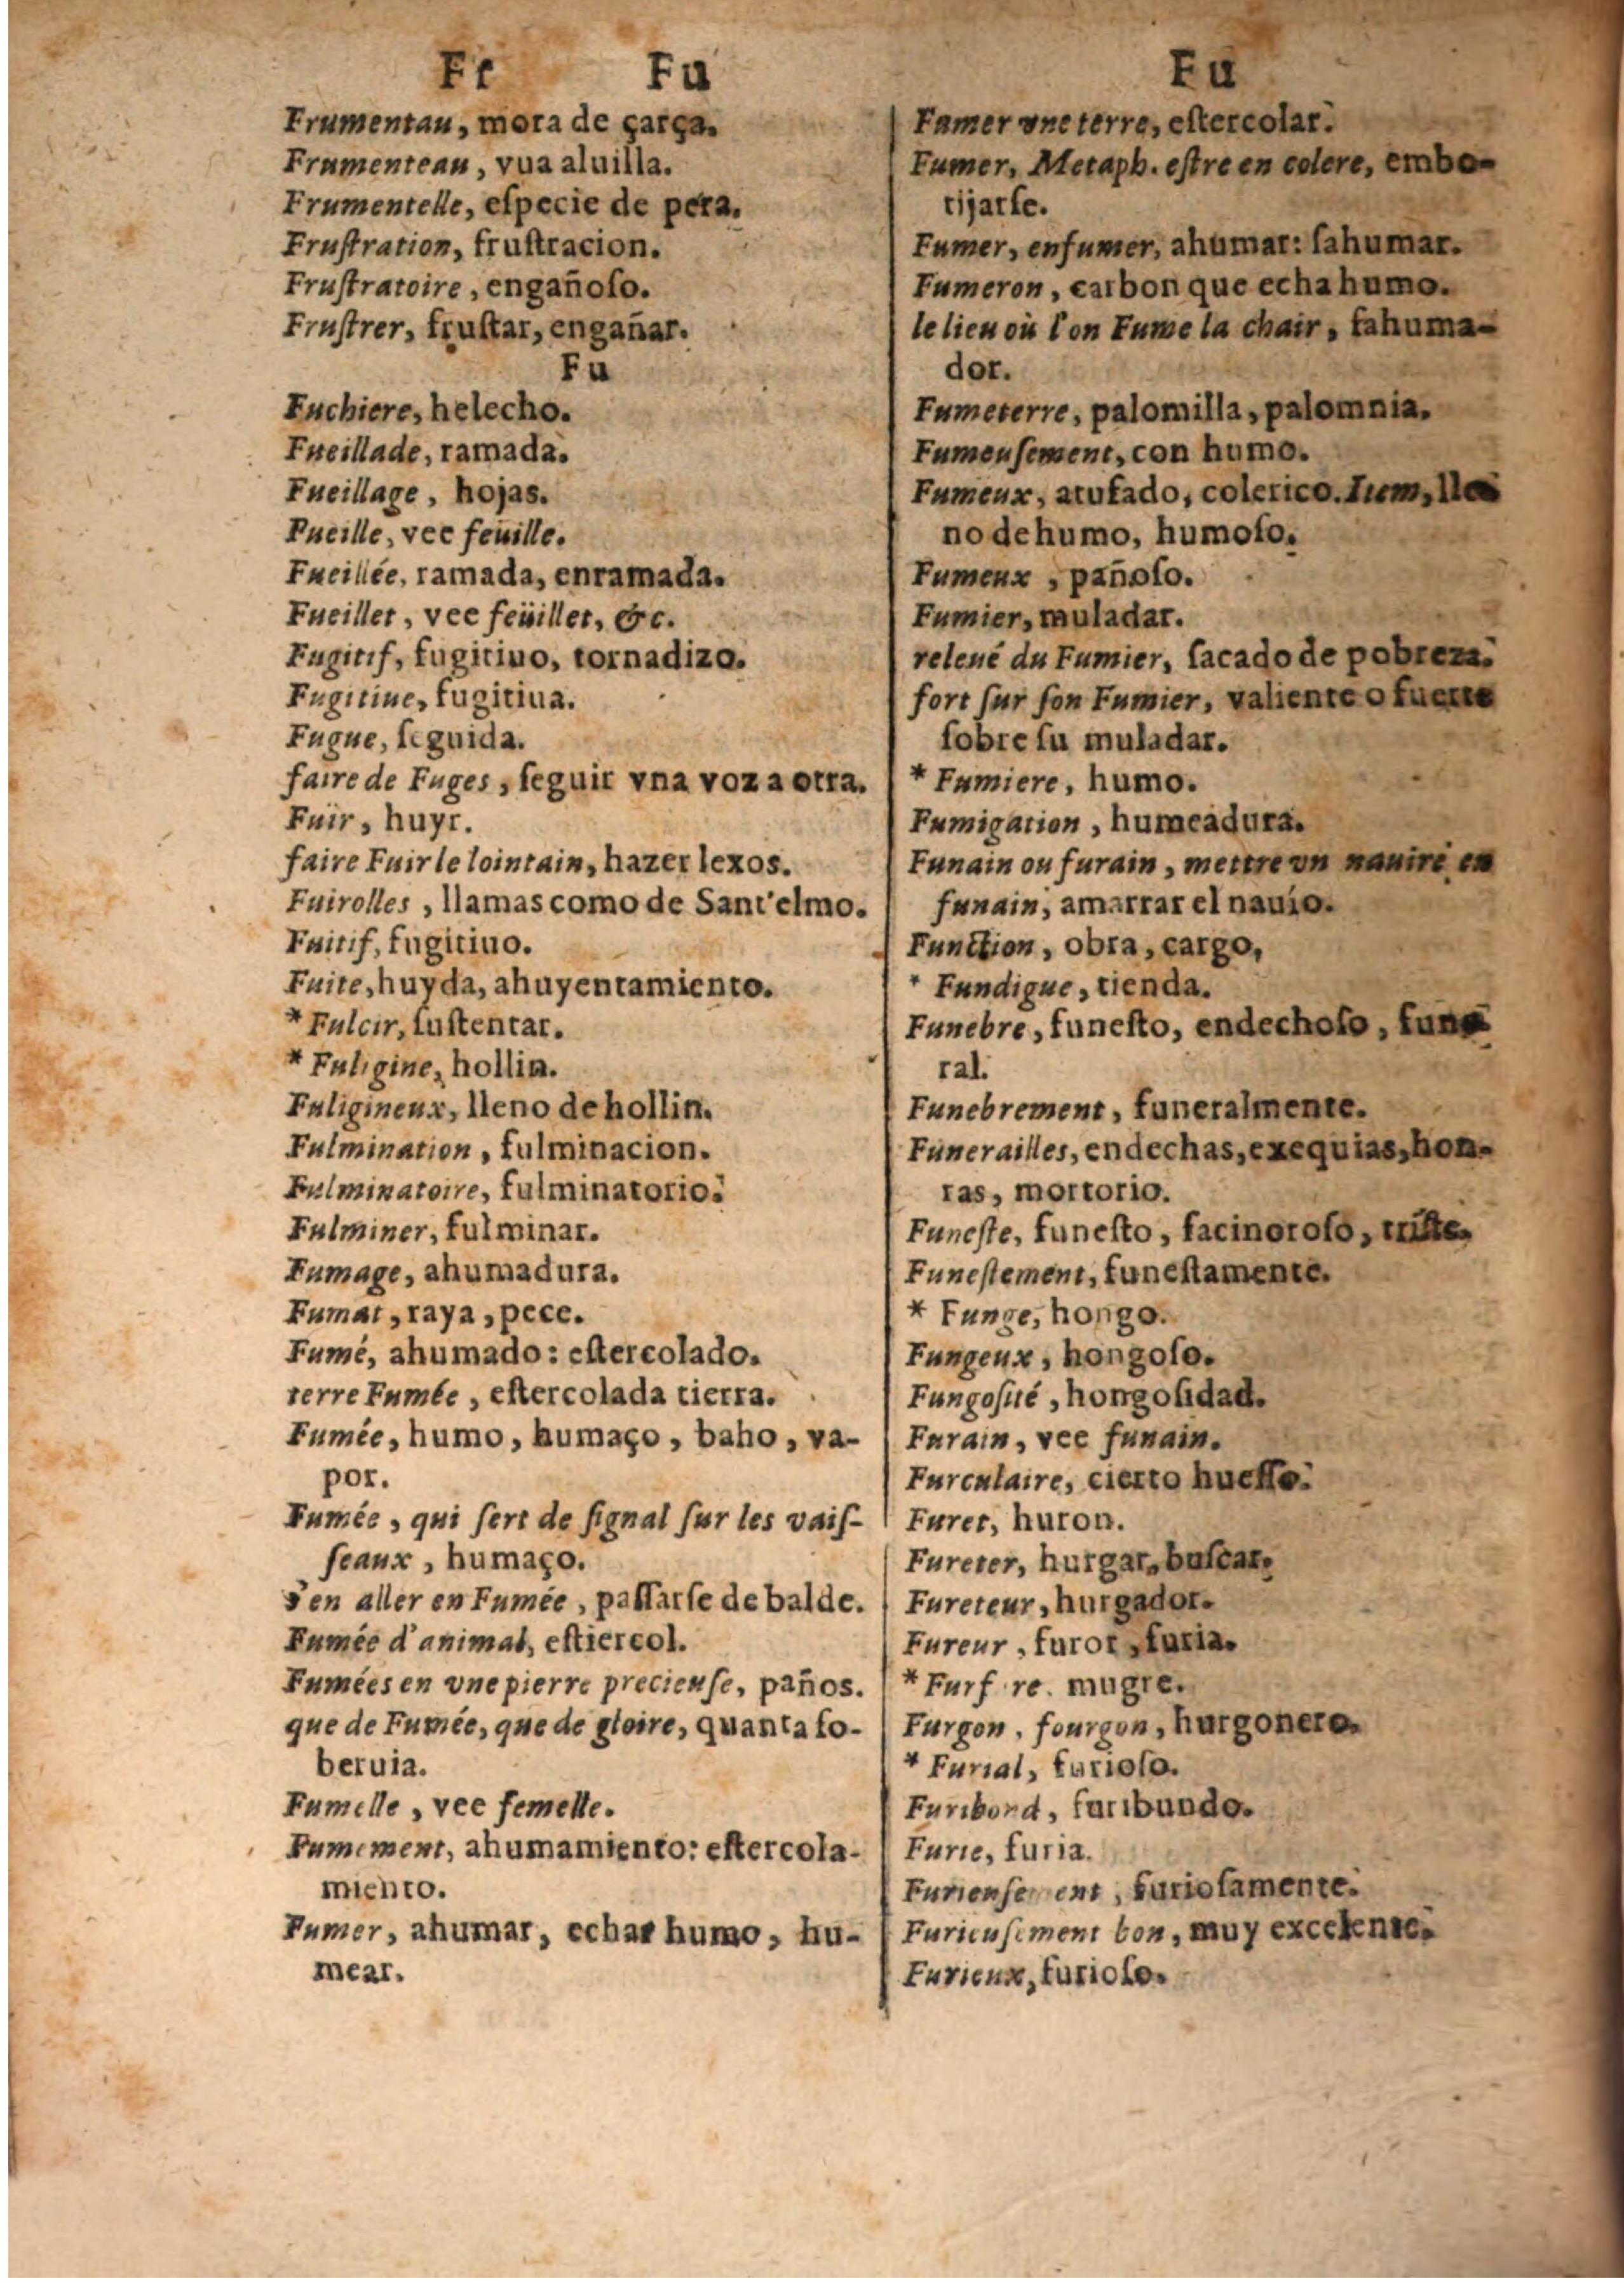 Fr Fu
Frumentau, mora de çarça.
Frumenteau, vua aluilla.
Frumentelle, eſpecie de pera.
Fruſtration, fruſtracion.
Fruſtratoire, engañoſo.
Fruſtrer, fruſtar, engañar.
Fu
Fuchiere, helecho.
Fueillade, ramada.
Fueillage, hojas.
Fueille, vee feuille.
Fueillée, ramada, enramada.
Fueillet, vee feüillet, &c.
Fugitif, fugitiuo, tornadizo.
Fugitiue, fugitiua.
Fugue, ſeguida.
faire de Fuges, ſeguir vna voz a otra.
Fuir, huyr.
faire Fuir le lointain, hazer lexos.
Fuirolles, llamas como de Sant'elmo.
Fuitif, fugitiuo.
Fuite, huyda, ahuyentamiento.
* Fulcir, ſuſtentar.
* Fuligine, hollin.
Fuligineux, lleno de hollin.
Fulmination, fulminacion.
Fulminatoire, fulminatorio.
Fulminer, fulminar.
Fumage, ahumadura.
Fumat, raya, pece.
Fumé, ahumado: eſtercolado.
terre Fumée, eſtercolada tierra.
Fumée, humo, humaço, baho, va-
por.
Fumée, qui ſert de ſignal ſur les vaiſ-
ſeaux, humaço.
s'en aller en Fumée, paſſarſe de balde.
Fumée d'animal, eſtiercol.
Fumées en vne pierre precieuſe, paños.
que de Fumée, que de gloire, quanta ſo-
beruia.
Fumelle, vee femelle.
Fumement, ahumamiento: eſtercola-
miento.
Fumer, ahumar, echar humo, hu-
mear.
Fu
Fumer vne terre, eſtercolar.
Fumer, Metaph. eſtre en colere, embo-
tijarſe.
Fumer, enfumer, ahumar: ſahumar.
Fumeron, carbon que echa humo.
le lieu où l'on Fume la chair, ſahuma-
dor.
Fumeterre, palomilla, palomnia.
Fumeuſement, con humo.
Fumeux, atufado, colerico. Item, lle-
no de humo, humoſo.
Fumeux, pañoſo.
Fumier, muladar.
releué du Fumier, ſacado de pobreza.
fort ſur ſon Fumier, valiente o fuerte
ſobre ſu muladar.
* Fumiere, humo.
Fumigation, humeadura.
Funain ou furain, mettre vn nauire en
funain, amarrar el nauio.
Function, obra, cargo,
* Fundigue, tienda.
Funebre, funeſto, endechoſo, fune
ral.
Funebrement, funeralmente.
Funerailles, endechas, exequias, hon-
ras, mortorio.
Funeſte, funeſto, facinoroſo, triſte.
Funeſtement, funeſtamente.
* Funge, hongo.
Fungeux, hongoſo.
Fungoſité, hongoſidad.
Furain, vee funain.
Furculaire, cierto hueſſo.
Furet, huron.
Fureter, hurgar, buſcar.
Fureteur, hurgador.
Fureur, furor, furia.
* mugre.
Furgon, fourgon, hurgonero.
* Furial, furioſo.
Furibond, furibundo.
Furie, furia.
Furieuſement, furioſamente.
Furieuſement bon, muy excelente.
Furieux, furioſo.